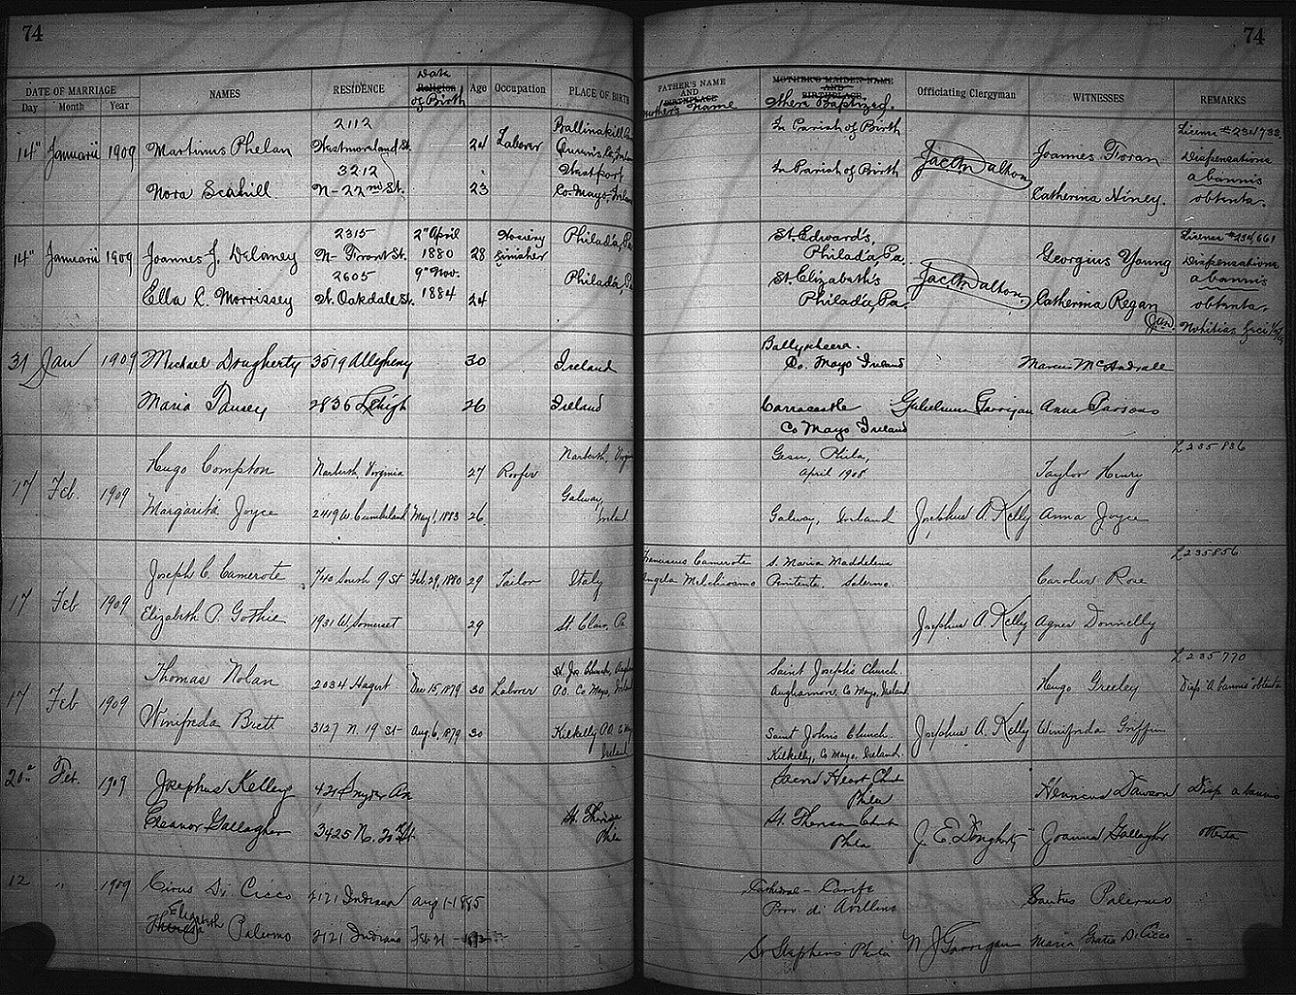 74
74
DATE OF MARRIAGE
Day Month Year
NAMES
RESIDENCE
Date
Religion
of Birth
Age
Occupation
PLACE OF BIRTH
FATHER'S NAME
AND
BIRTHPLACE
Mother's name
MOTHER'S MAIDEN NAME
AND
BIRTHPLACE
Where Baptized.
Officiating Clergyman
WITNESSES
REMARKS
14" Januarii 1909 Martinus Phelan 2112 Westmoreland St. 24 Laborer In Parish of Birth Joannes Foran
Nora Scahill 3212 N-22nd St. 23 Westport Co. Mayo, In Parish of Birth Catherina Hiney.
Dispensatione
a bannis
obtenta.
14" Januarii 1909 Joannes J. Delaney 2315 N. Front St. 2" April 1880 28 Hosiery Finisher Philad'a, Pa. St. Edward's, Philad'a, Pa. Georgius Young License # 234661
Ella C. Morrissey 2605 N. Oakdale St. 9" Nov. 1884 24 Philad'a, Pa. St. Elizabeth's Philad'a, Pa. Catherina Regan
Dispensatione
a bannis
obtenta.
31 Jan 1909 Michael Dougherty 3519 Allegheny 30 Ireland Co. Mayo Ireland
Maria 2836 Lehigh 26 Ireland Carracastle Co Mayo Ireland Gulielmus Garrigan Anna Parsons
17 Feb. 1909 Hugo Compton 27 Roofer Gesu, Phila, April 1908 Taylor Henry L 235836
Margarita Joyce 2419 W. Cumberland May 1, 1883 26 Galway, Ireland Galway, Ireland Josephus A. Kelly Anna Joyce
17 Feb 1909 Joseph C. Camerote 740 South 9 St Feb 29, 1880 29 Tailor Italy Franciscus Camerote S. Maria Maddelena Carolus Rose L 235856
Angela Penitente. Salerno
Elizabeth P. Gothie 1931 W. Somerset 29 St. Clair, Pa Josephus A. Kelly Agnes Donnelly
17 Feb 1909 Thomas Nolan 2034 Hagert Dec 15, 1879 30 Laborer Co. Mayo, Ireland Saint Joseph's Church. Aughamore, Co Mayo, Ireland Hugo Greeley L 235770
Disp. "A bannis" obtenta
Winifreda Brett 3137 N. 19 St- Aug. 6, 1879 30 Kilkelly Ireland Saint Johns Church. Kilkelly, Co Mayo, Ireland. Josephus A. Kelly Winifreda Griffin
20 Feb. 1909 Josephus Kelley 421 Snyder Ave Sacred Heart Phila Henricus Dawson Disp a bannis
Eleanor Gallagher 3425 N. 20th St. Phila Phila J. E. Dougherty Joanna Gallagher
12 " 1909 Cirus Di Cicco 2121 Indiana Aug 1-1885 Cathedral - Prov. di Avellino Santus Palermo
Elizabeth
Theresa Palermo 2121 Indiana Feb 21 - St Stephens Phila N J Garrigan Maria Di Cicco